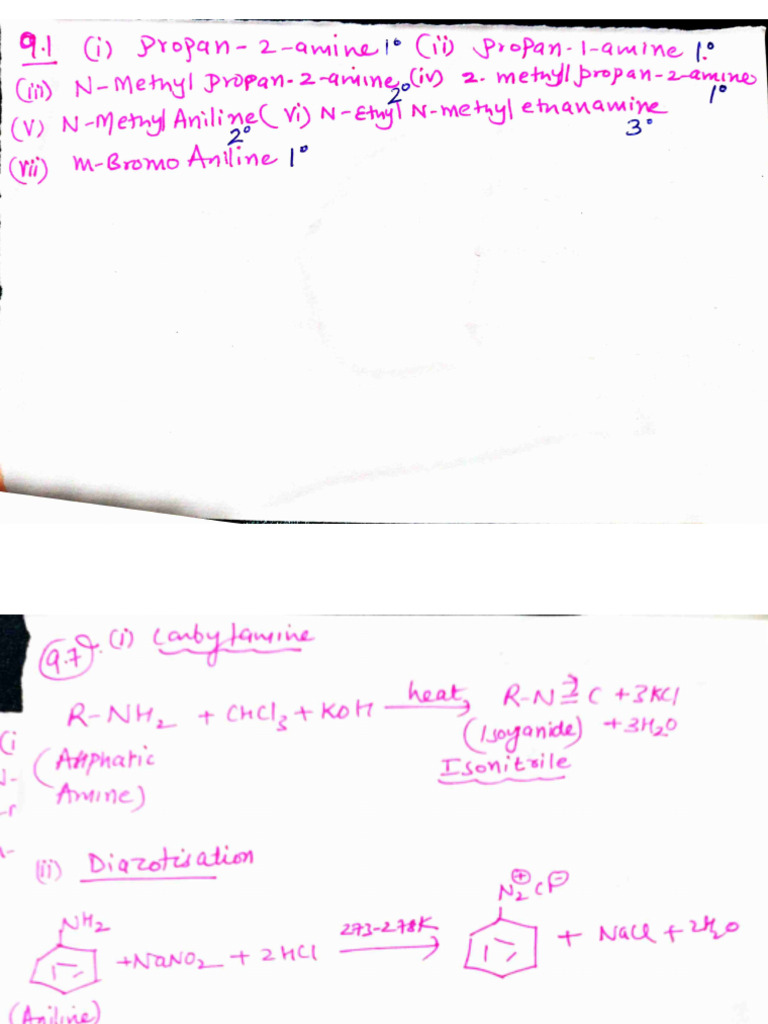 9.1 (i) Propan-2-amine 1° (ii) Propan-1-amine 1°
(iii) N-Methyl propan-2-amine 2° (iv) 2-methyl propan-2-amine 1°
(v) N-Methyl Aniline 2° (vi) N-Ethyl N-methyl ethanamine 3°
(vii) m-Bromo Aniline 1°
9.7 (i) Carbylamine
R-NH2 + CHCl3 + KOH heat R-N≡C + 3KCl
(Isoyanide) + 3H2O
(Aliphatic
Isonitrile
Amine)
(ii) Diazotisation
N2⊕ Cl⊖
NH2
+ NaNO2 + 2HCl 273-278K + NaCl + 2H2O
(Aniline)